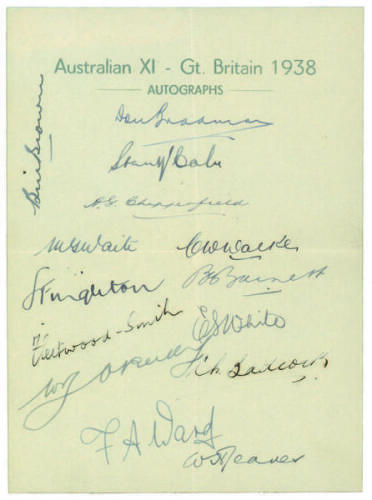 Australian XI - Gt. Britain 1938
AUTOGRAPHS
Bill Brown
Don Bradman
Stan McCabe
A.G. Chipperfield
M G Waite
C W Walker
J H Fingleton
B A Barnett
Fleetwood-Smith
E S White
W J O'Reilly
C L Badcock
F A Ward
W Jeanes